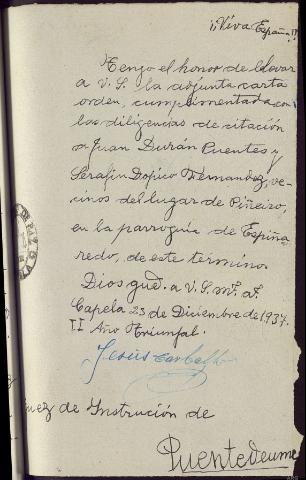 ¡¡Viva España!!
Tengo el honor de llevar
a V. S. la adjunta carta
orden, cumplimentada con
las diligencias de citación
a Juan Durán Puentes y
Serafín Dopico Fernandez, ve-
cinos del lugar de Piñeiro,
en la parroquia de Espiña
redo, de este termino.
Dios gue. a V. S. m. a.
Capela 23 de Diciembre de 1937.
II Año Triunfal.
Jesús
Juez de Instrución de
Puentedeume